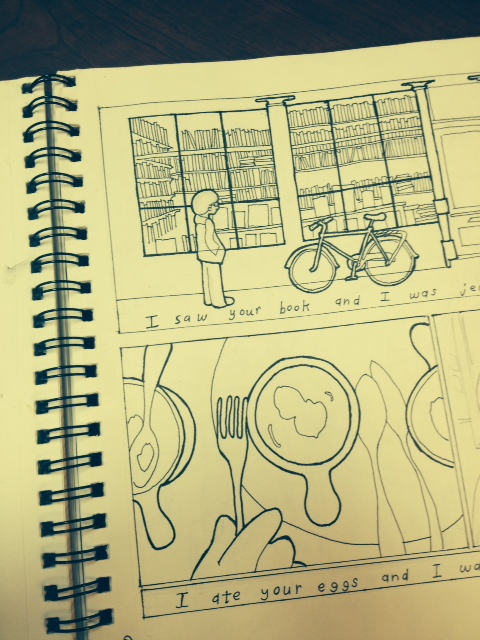 I saw your book and I was
I ate your eggs and I